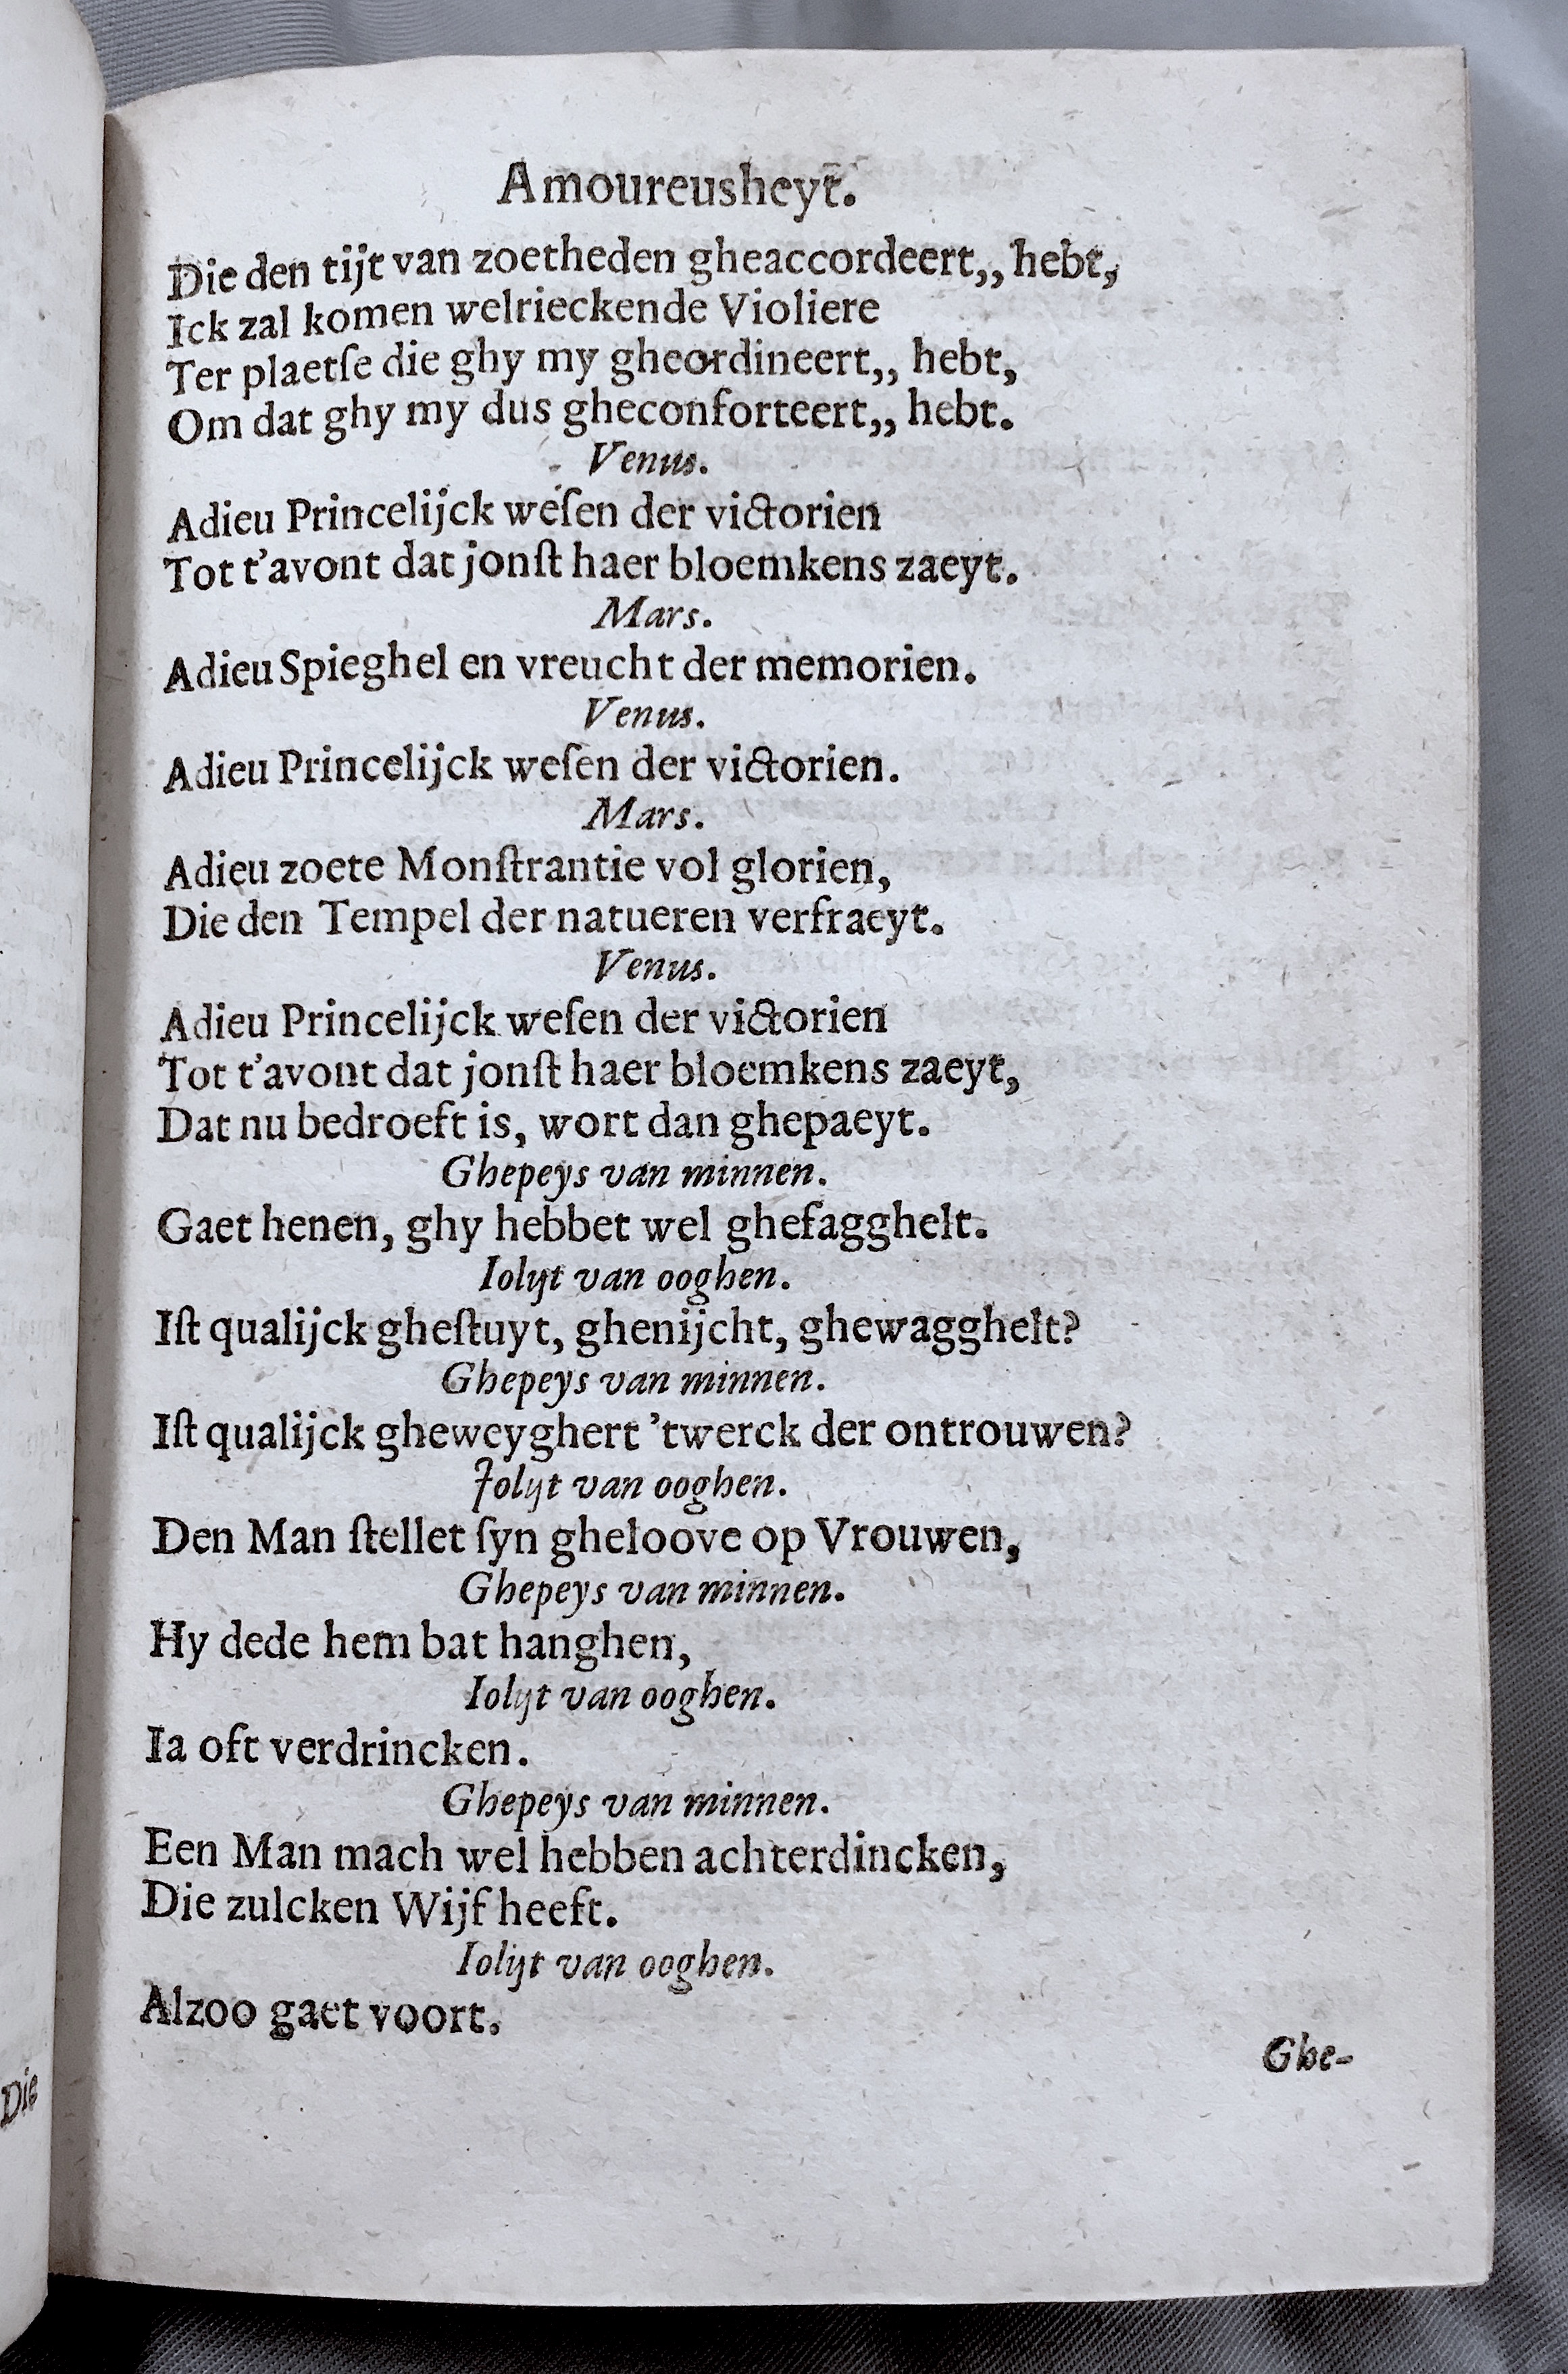 Amoureusheyt.
Die den tijt van zoetheden gheaccordeert,, hebt,
Ick zal komen welrieckende Violiere
Ter plaetſe die ghy my gheordineert,, hebt,
Om dat ghy my dus gheconforteert,, hebt.
Venus.
Adieu Princelijck weſen der victorien
Tot t'avont dat jonſt haer bloemkens zaeyt.
Mars.
Adieu Spieghel en vreucht der memorien.
Venus.
Adieu Princelijck weſen der victorien.
Mars.
Adieu zoete Monſtrantie vol glorien,
Die den Tempel der natueren verfraeyt.
Venus.
Adieu Princelijck weſen der victorien
Tot t'avont dat jonſt haer bloemkens zaeyt,
Dat nu bedroeft is, wort dan ghepaeyt.
Ghepeys van minnen.
Gaet henen, ghy hebbet wel ghefagghelt.
Iolijt van ooghen.
Iſt qualijck gheſtuyt, ghenijcht, ghewagghelt?
Ghepeys van minnen.
Iſt qualijck gheweyghert 'twerck der ontrouwen?
Jolijt van ooghen.
Den Man ſtellet ſyn gheloove op Vrouwen,
Ghepeys van minnen.
Hy dede hem bat hanghen,
Iolijt van ooghen.
Ia oft verdrincken.
Ghepeys van minnen.
Een Man mach wel hebben achterdincken,
Die zulcken Wijf heeft.
Iolijt van ooghen.
Alzoo gaet voort.
Ghe-
Die